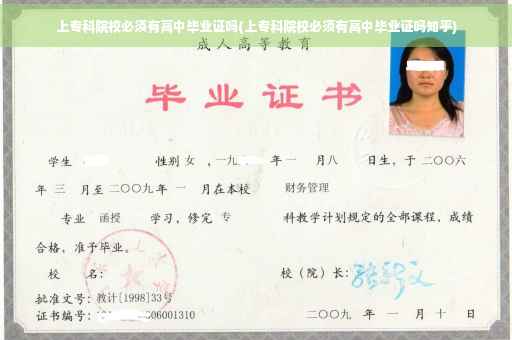 上专科院校必须有高中毕业证吗(上专科院校必须有高中毕业证吗知乎)
成人高等教育
毕业证书
学生 性别 女 ，一九 年 一 月八 日生，于 二〇〇六
年 三 月至 二〇〇九 年 一 月在本校 财务管理
专业 函授 学习，修完 专 科教学计划规定的全部课程，成绩
合格，准予毕业。
校 名： 校（院）长：
批准文号：教计[1998]33号
证书编号： 06001310 二〇〇九 年 一 月 十 日